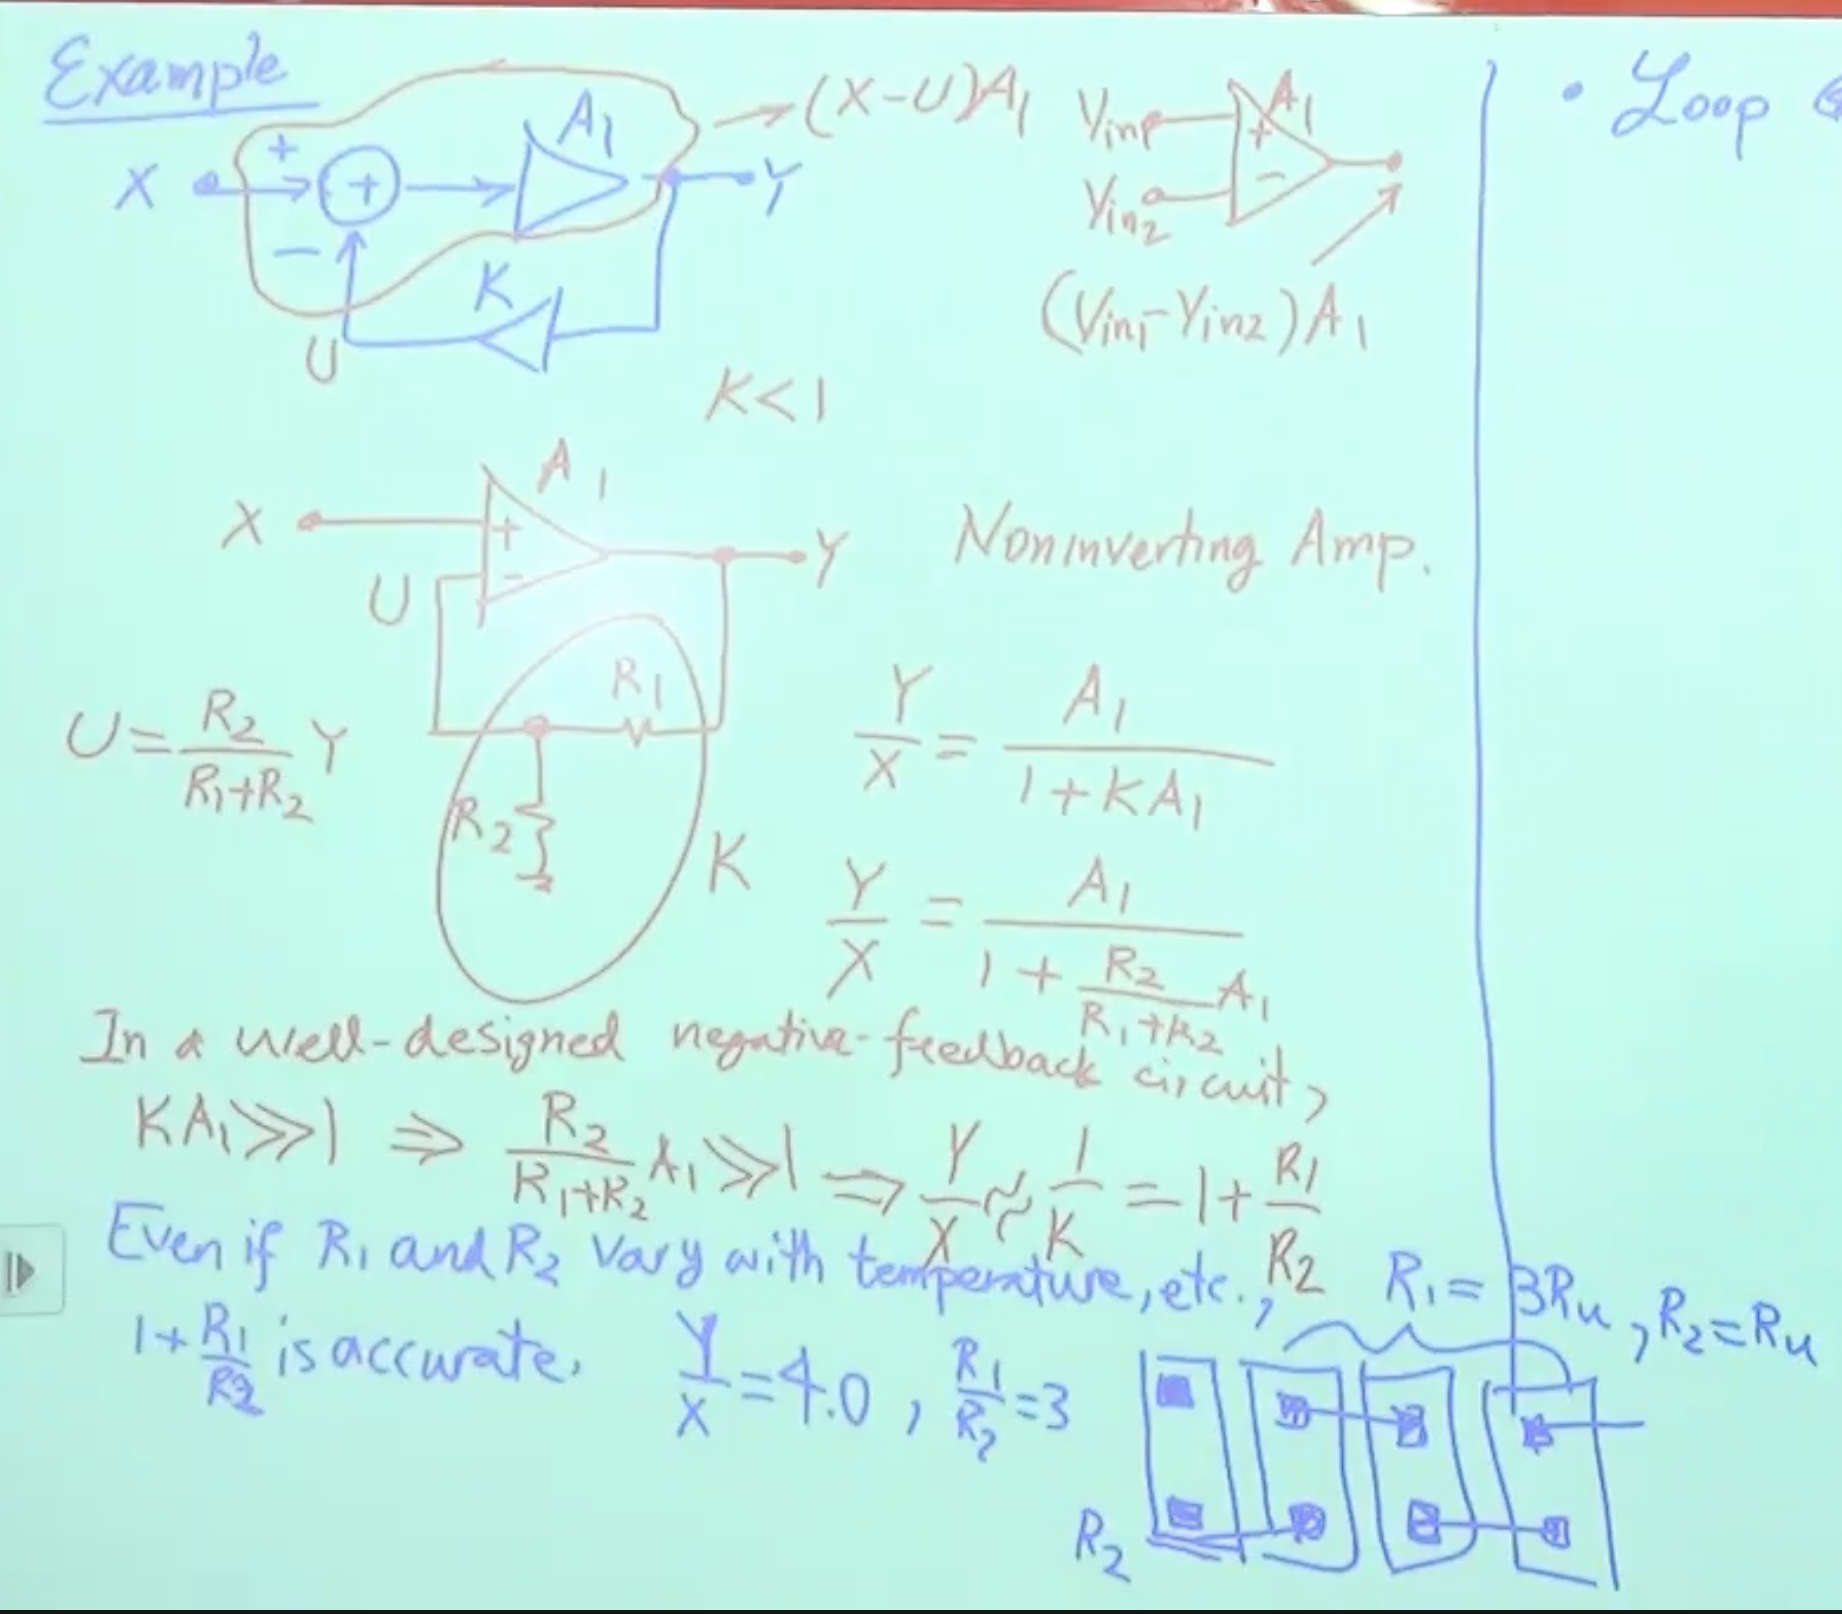 Example
+
X
+
−
A1
Y
K
U
→ (X-U)A1
Vin1
Vin2
A1
+
−
(Vin1-Vin2)A1
K<1
X
A1
+
−
Y
U
Noninverting Amp.
U = R2/(R1+R2) Y
R1
R2
K
Y/X = A1/(1+KA1)
Y/X = A1/(1 + R2/(R1+R2) A1)
In a well-designed negative-feedback circuit,
KA1 ≫ 1 ⇒ R2/(R1+R2) A1 ≫ 1 ⇒ Y/X ≈ 1/K = 1 + R1/R2
Even if R1 and R2 vary with temperature, etc.,
1 + R1/R2 is accurate.
Y/X = 4.0, R1/R2 = 3
R1 = 3Ru, R2 = Ru
R2
• Loop